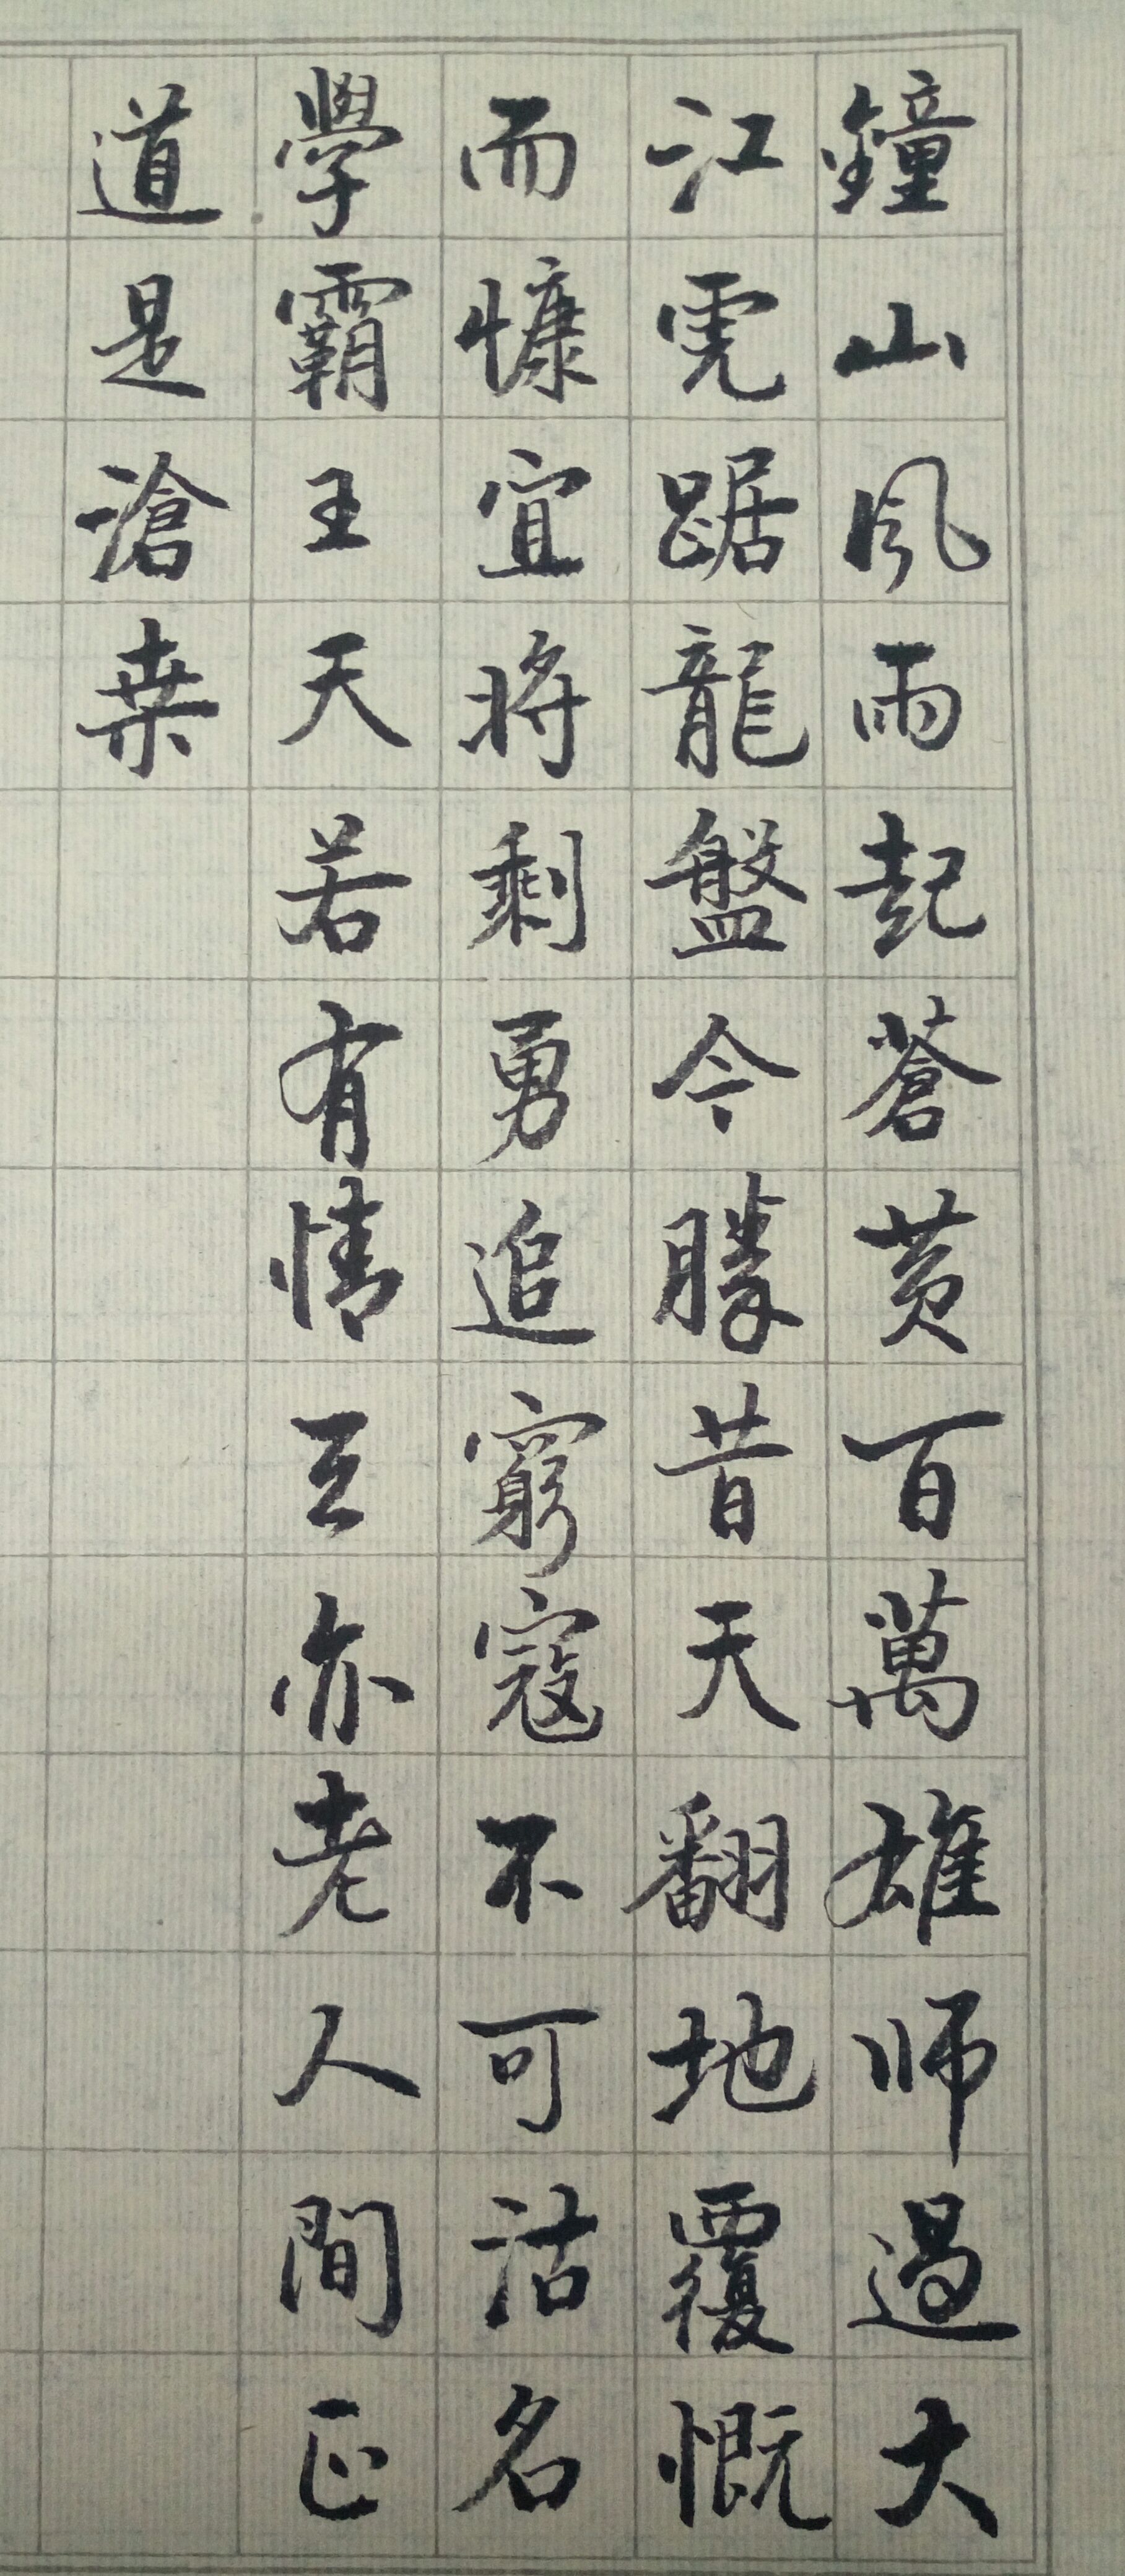 鐘山風雨起蒼黃百萬雄師過大
江虎踞龍盤今勝昔天翻地覆慨
而慷宜將剩勇追窮寇不可沽名
學霸王天若有情天亦老人間正
道是滄桑